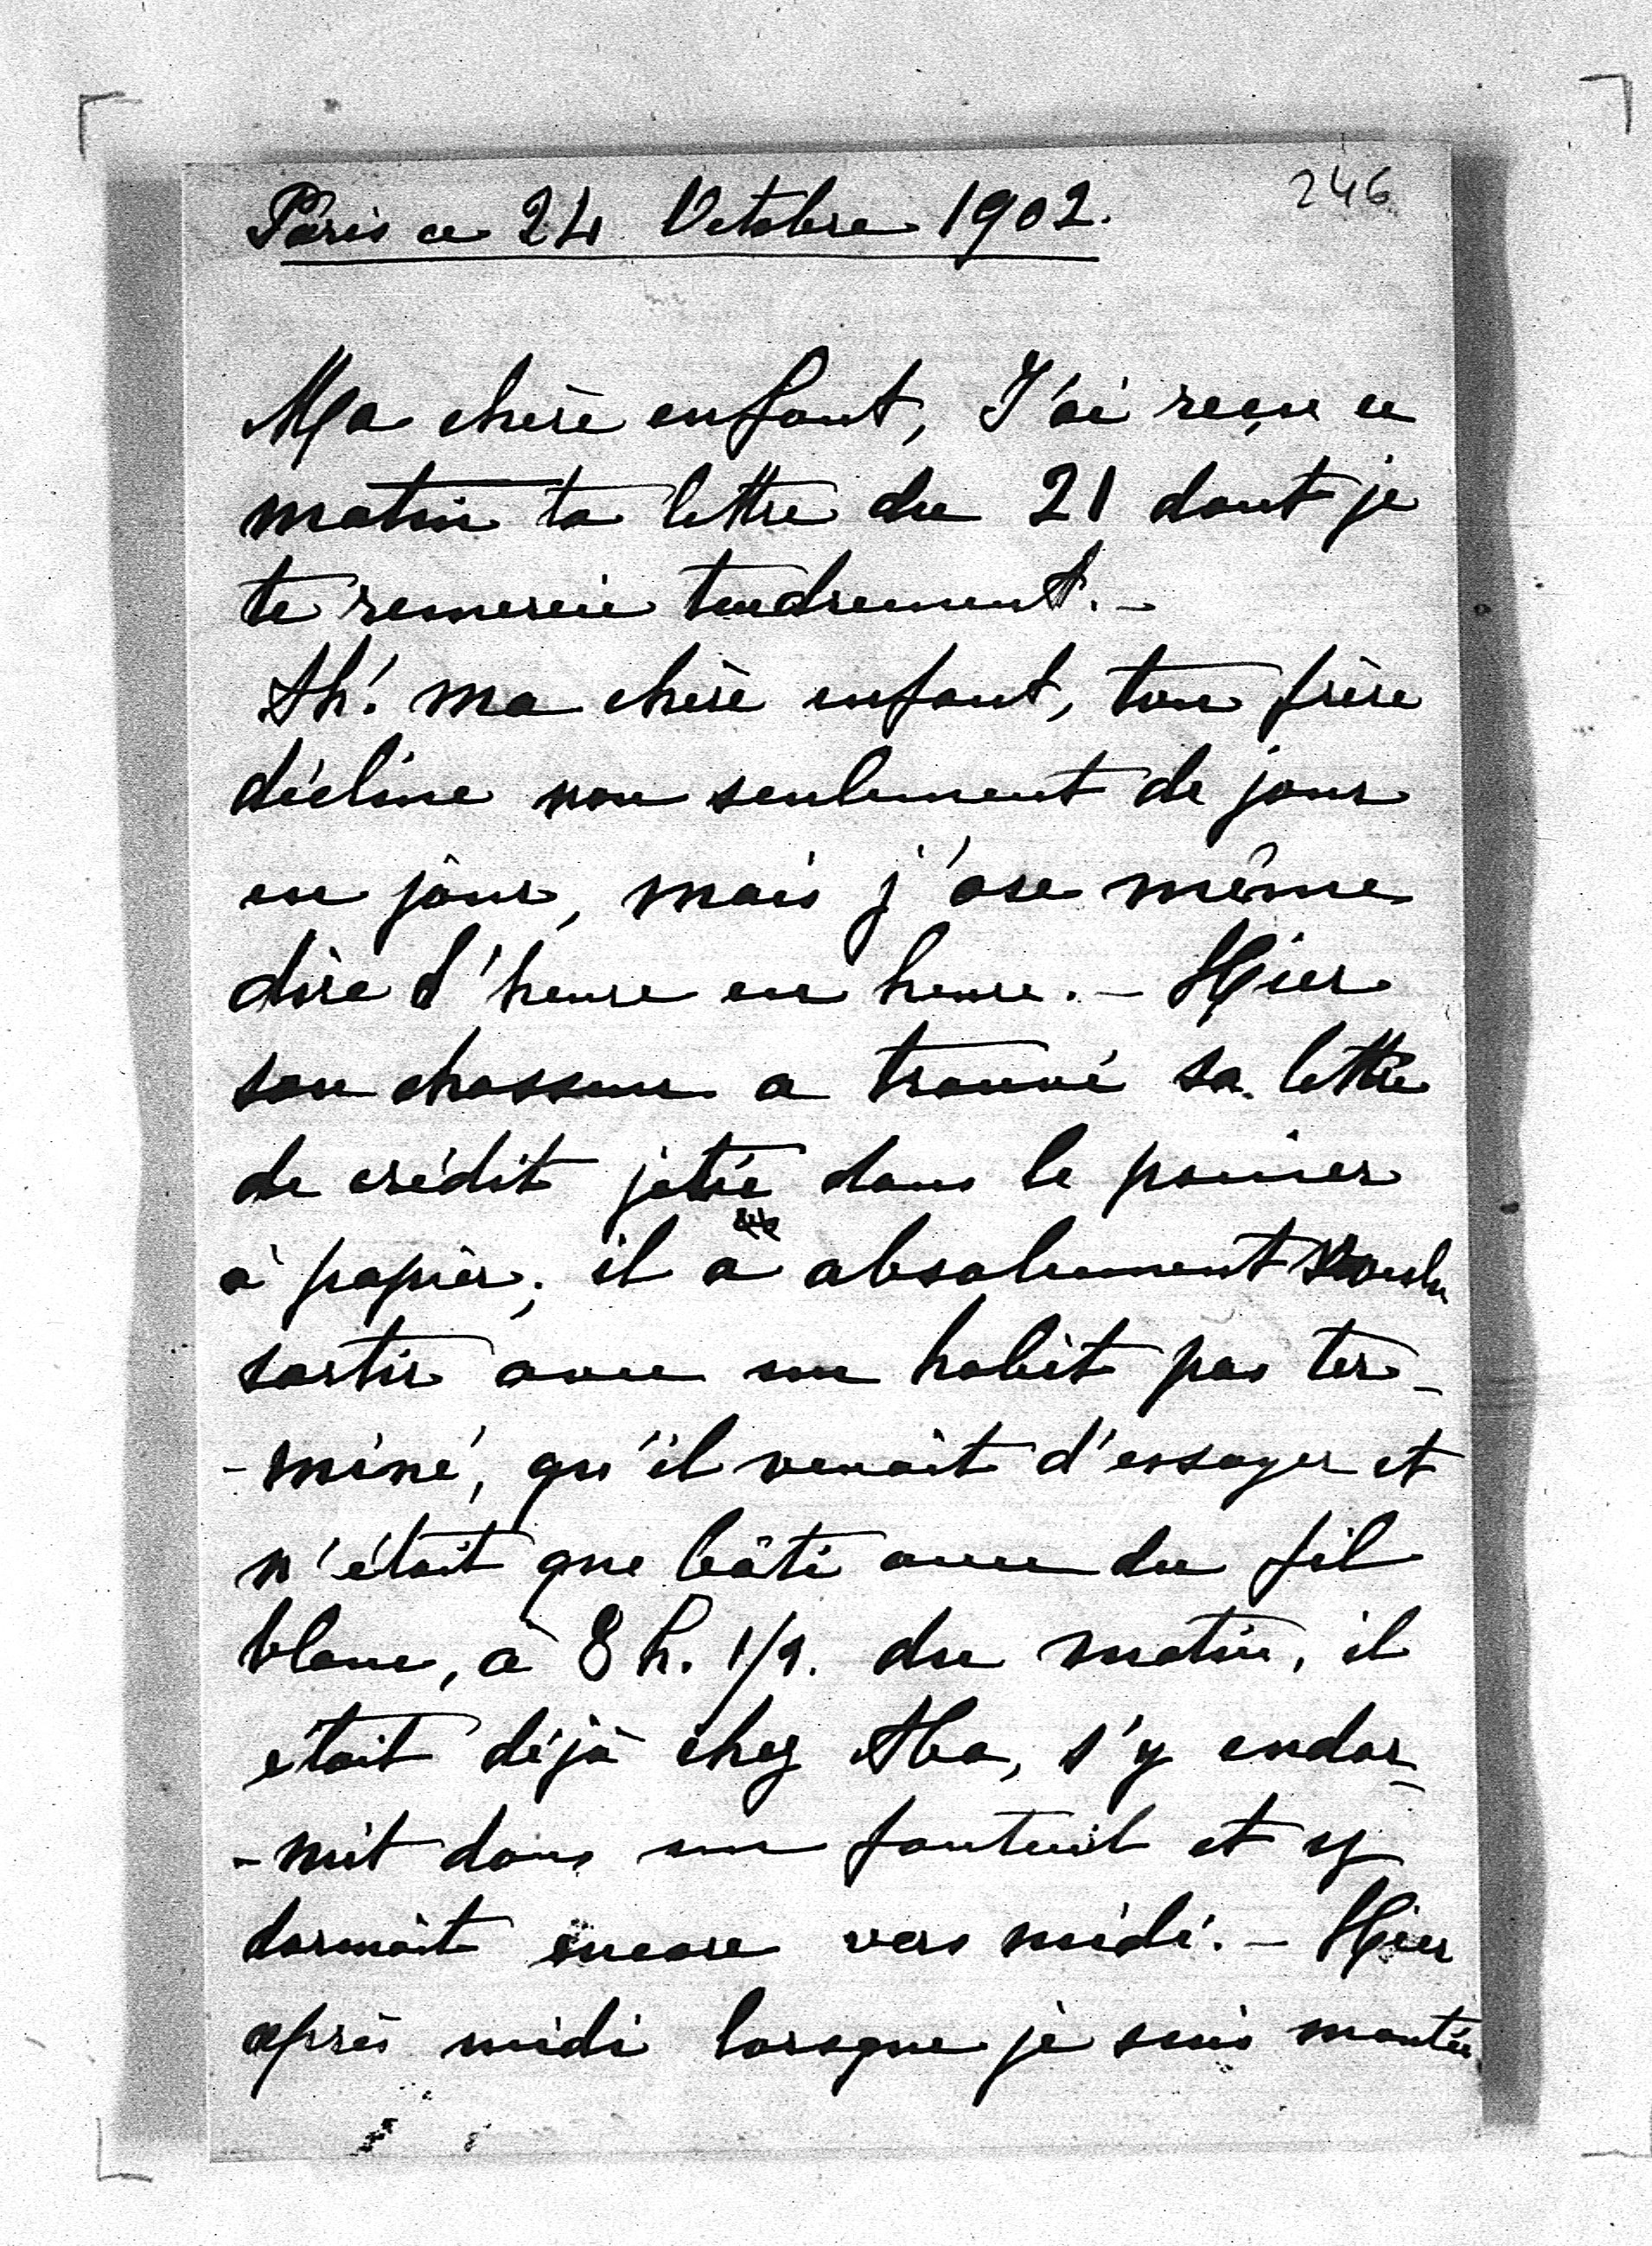 246
Paris ce 24 Octobre 1902.
Ma chère enfant, J'ai reçu ce
matin ta lettre du 21 dont je
te remercie tendrement. -
Ah! ma chère enfant, ton frère
décline non seulement de jour
en jour, mais j'ose même
dire d'heure en heure. - Hier
son chasseur a trouvé sa lettre
de crédit jetée dans le panier
à papier; il a absolument voulu
sortir avec un habit pas ter-
-miné, qu'il venait d'essayer et
n'était que bâti avec du fil
blanc, à 8 h. 1/2. du matin, il
était déjà chez Aba, s'y endor-
-mit dans un fauteuil et y
dormait encore vers midi. - Hier
après midi lorsque je suis montée